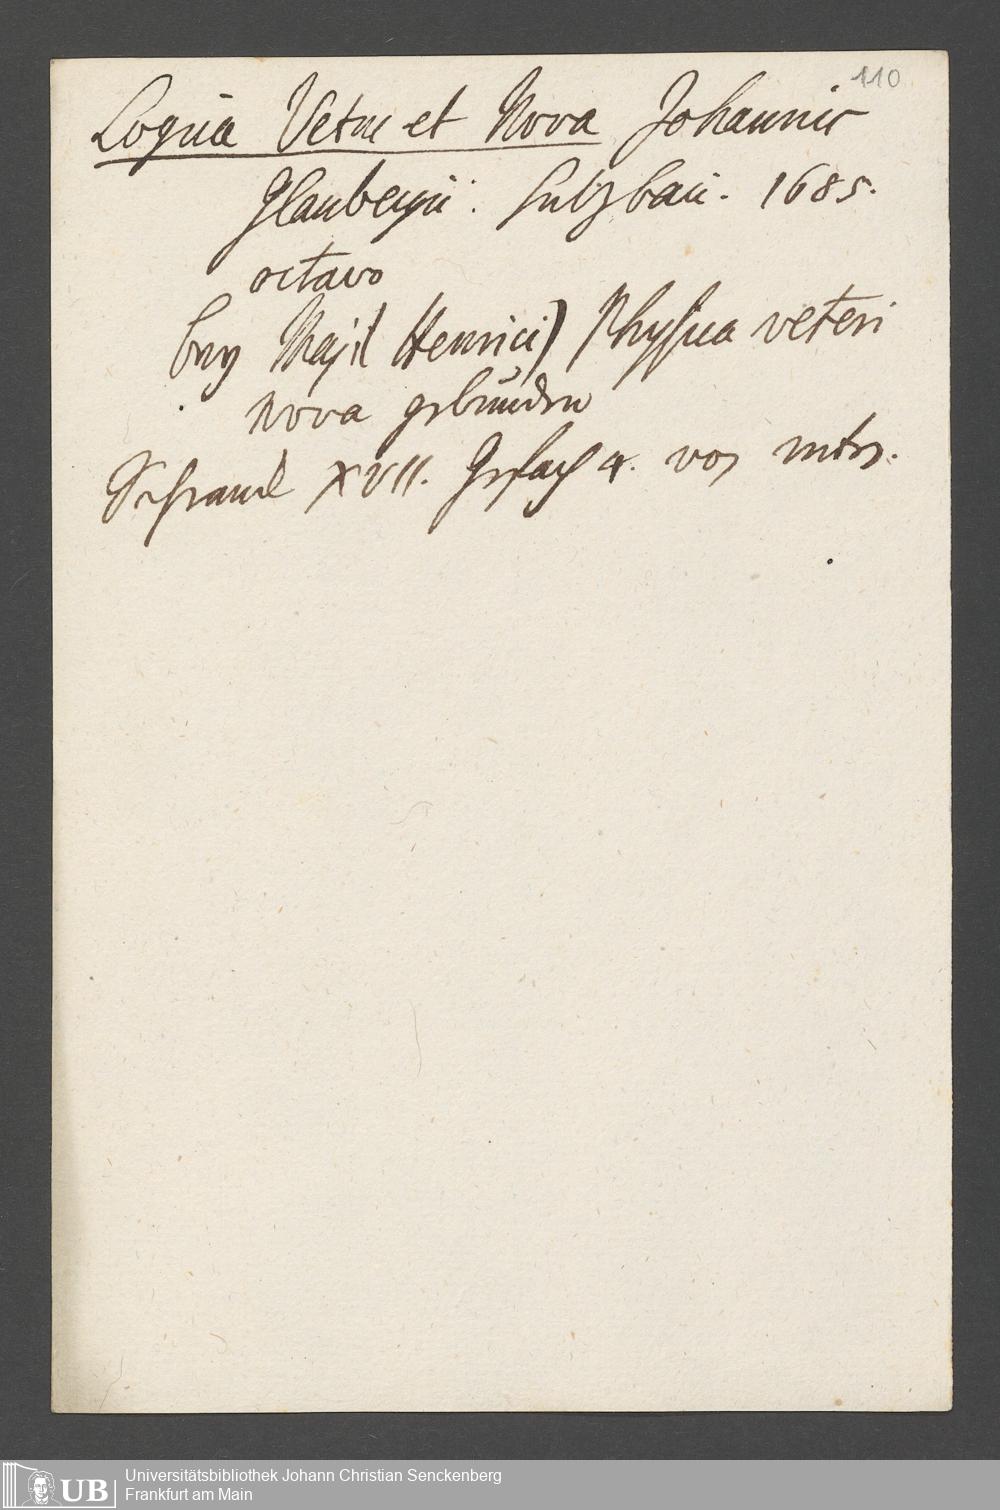 110
Logica Vetus et Nova Johannis
Glaubergii. Sulzbaci. 1685.
octavo
bey Maji (Henrici) Physica veteri
nova gebunden
Schranck XVII. Gefach 4. von unten.
Universitätsbibliothek Johann Christian Senckenberg
Frankfurt am Main
UB